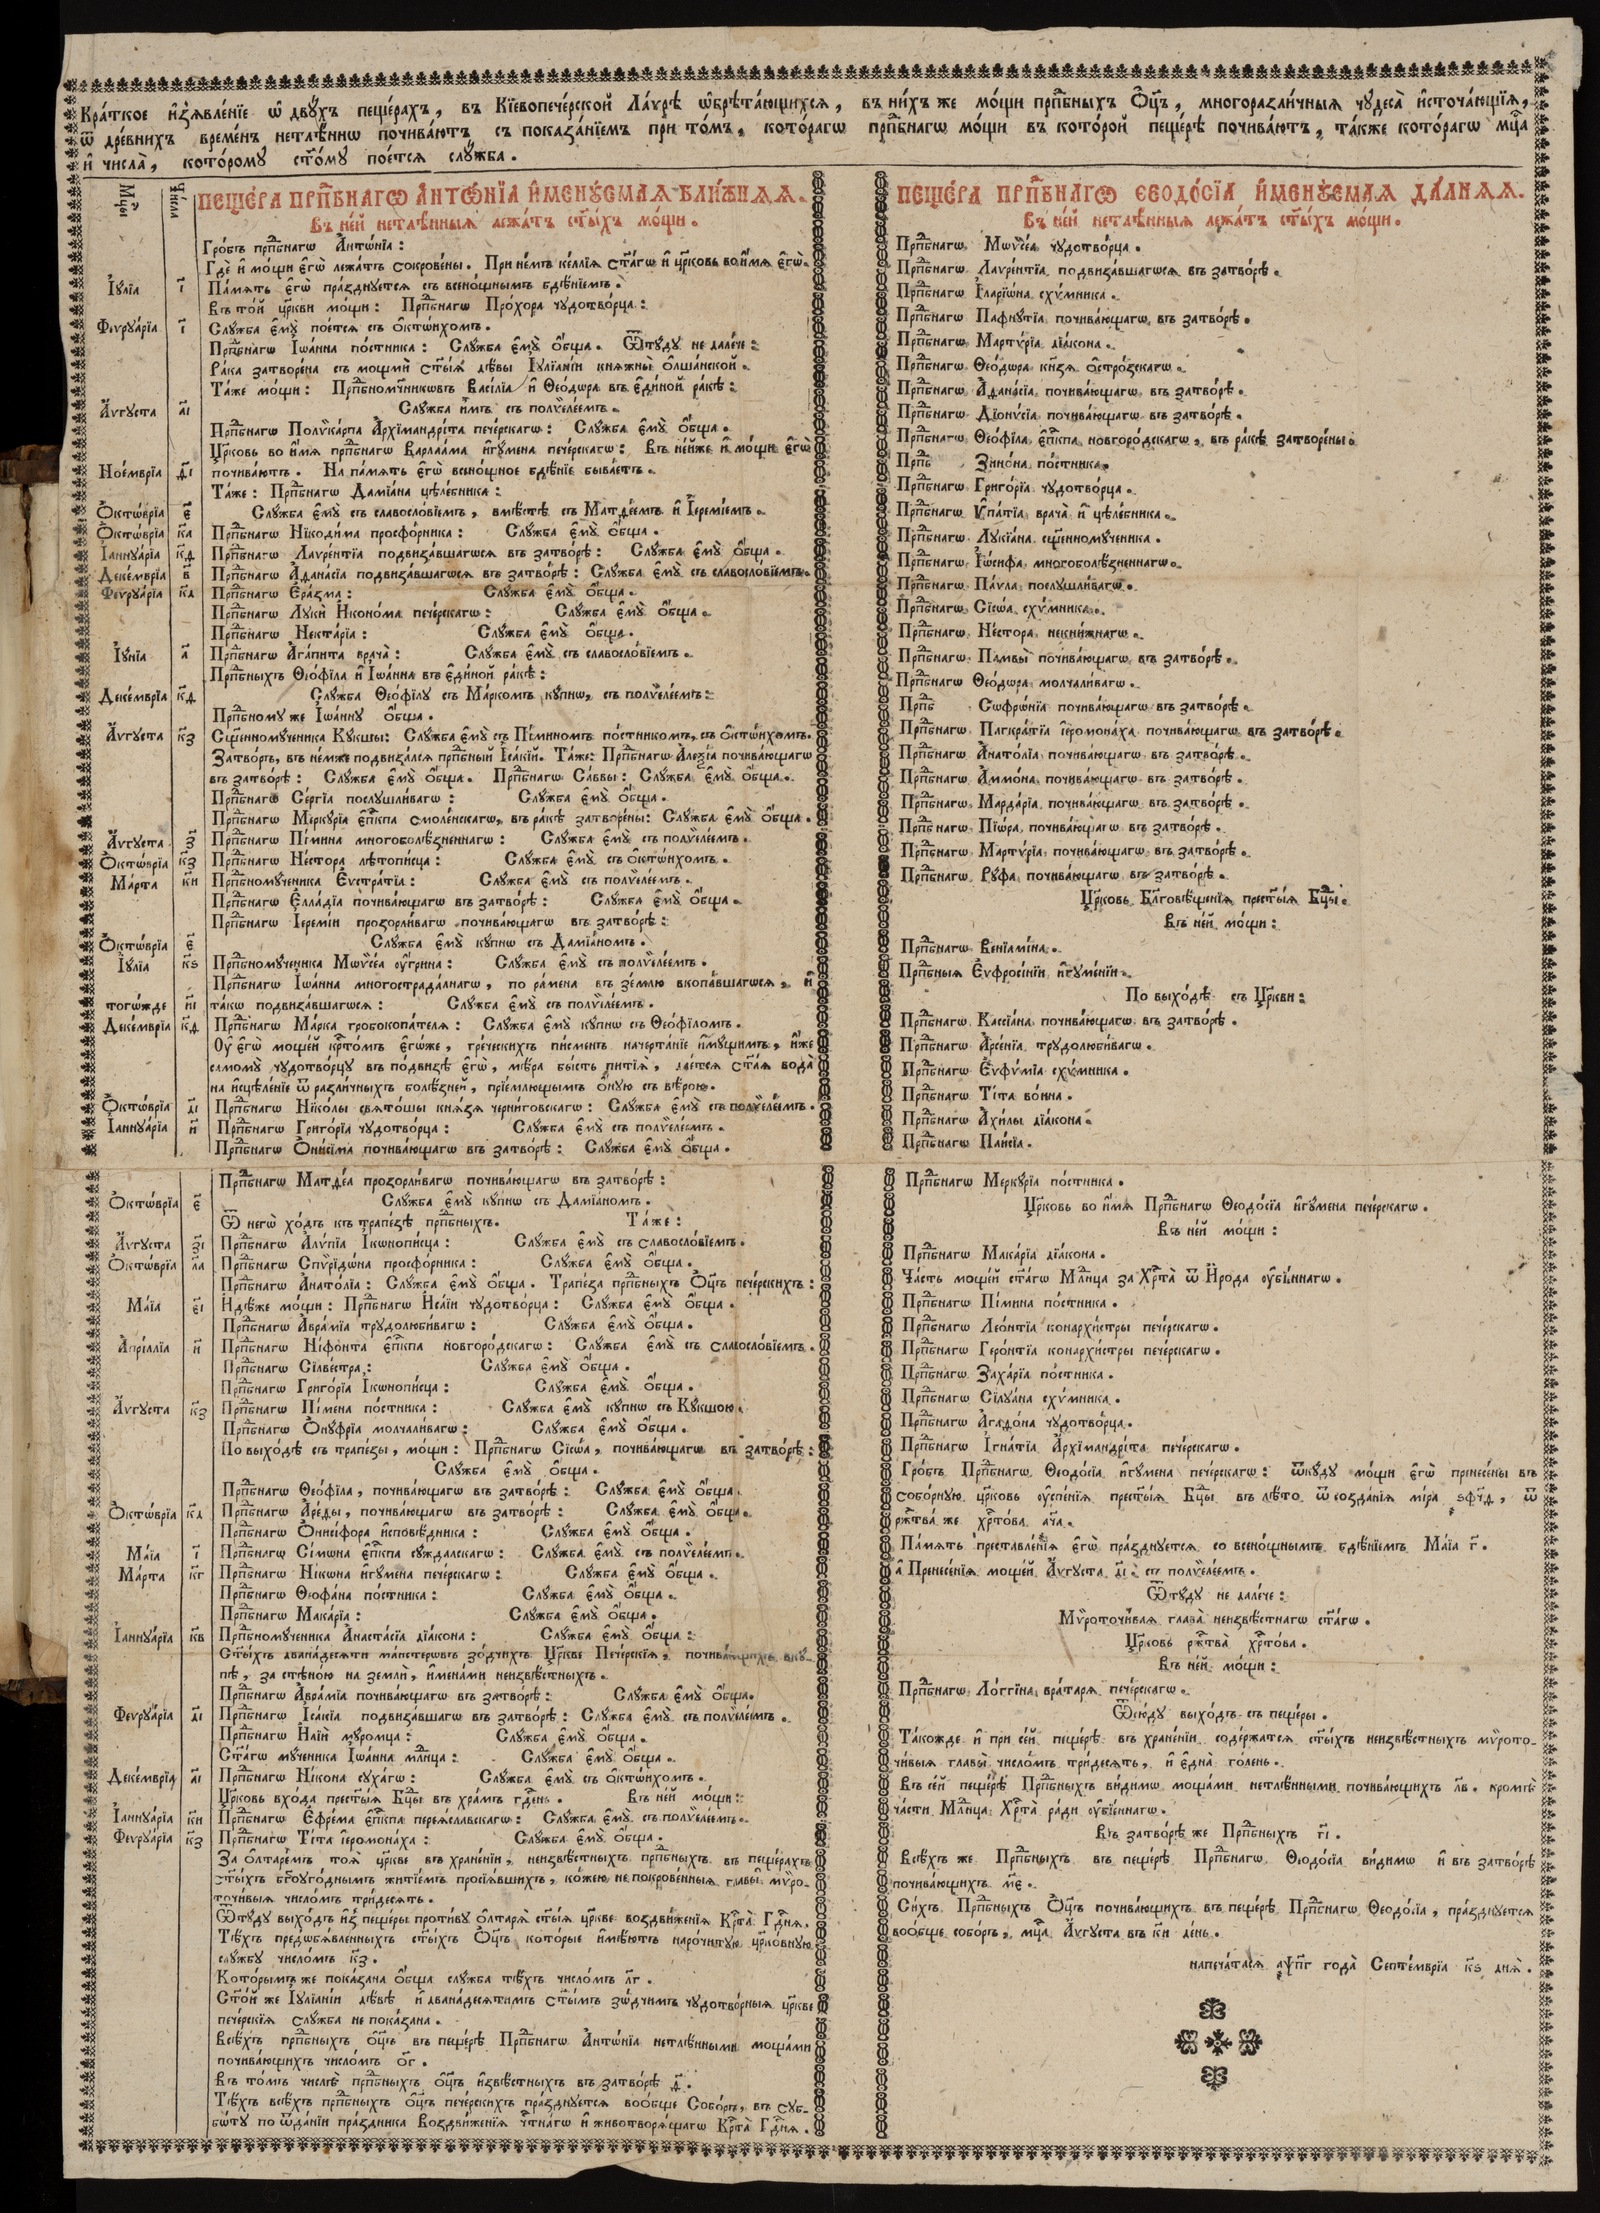 Кра́ткое и҆з̾ѧвле́нїе ѡ҆ двꙋ́хъ пеще́рахъ, въ Кїевопече́рской Ла́ѵрѣ ѡ҆брѣта́ющихсѧ, въ ни́хъ же мо́щи прпⷣбныхъ Ѻ҆ц҃ъ, многоразли́чныѧ чꙋдеса̀ и҆сточа́ющїѧ,
ѿ дре́внихъ време́нъ нетлѣ́ннѡ почива́ютъ съ показа́нїемъ при то́мъ, кото́рагѡ прпⷣбнагѡ мо́щи въ кото́рой пеще́рѣ почива́ютъ, та́кже кото́рагѡ мц҃а
и҆ числа̀, кото́ромꙋ ст҃о́мꙋ пое́тсѧ слꙋ́жба.
Мц҃ы Чи́сла
ПЕЩЕ́РА ПРПⷣБНАГѠ А҆НТѠ́НЇА И҆МЕНꙋ́ЕМАѦ БЛИ́ЖНѦѦ.
въ не́й нетлѣ́нныѧ лежа́тъ ст҃ы́хъ мо́щи.
Гро́бъ прпⷣбнагѡ А҆нтѡ́нїа:
Гдѐ и҆ мо́щи є҆гѡ̀ лежа́тъ сокрове́ны. При не́мъ ке́ллїѧ ст҃а́гѡ и҆ цр҃ковь во и҆́мѧ є҆гѡ̀.
І҆ꙋ́лїа і҃ Па́мѧть є҆гѡ̀ пра́зднꙋетсѧ съ всено́щнымъ бдѣ́нїемъ.
Въ то́й цр҃кви мо́щи: Прпⷣбнагѡ Про́хора чꙋдотво́рца:
Феврꙋа́рїа і҃ Слꙋ́жба є҆мꙋ̀ пое́тсѧ съ ѻ҆ктѡ́ихомъ.
Прпⷣбнагѡ І҆ѡа́нна по́стника: Слꙋ́жба є҆мꙋ̀ ѻ҆́бща. Ѿтꙋ́дꙋ не дале́че:
Ра́ка затворе́на съ мощмѝ ст҃ы́ѧ дѣ́вы І҆ꙋлїані́и кнѧжны̀ ѻ҆лша́нской.
Та́же мо́щи: Прпⷣбномч҃никѡвъ Васі́лїа и҆ Ѳео́дѡра въ є҆ди́ной ра́кѣ:
А҆́ѵгꙋста а҃і Слꙋ́жба и҆̀мъ съ полѷеле́емъ.
Прпⷣбнагѡ Полѷка́рпа А҆рхїмандрі́та пече́рскагѡ: Слꙋ́жба є҆мꙋ̀ ѻ҆́бща.
Цр҃ковь во и҆́мѧ прпⷣбнагѡ Варлаа́ма и҆гꙋ́мена пече́рскагѡ: Въ не́йже и҆ мо́щи є҆гѡ̀
Ное́мврїа д҃і почива́ютъ. На па́мѧть є҆гѡ̀ всено́щное бдѣ́нїе быва́етъ.
Та́же: Прпⷣбнагѡ Дамїа́на цѣле́бника:
Ѻ҆ктѡ́врїа є҃ Слꙋ́жба є҆мꙋ̀ съ славосло́вїемъ, вмѣ́стѣ съ Матѳе́емъ и҆ І҆еремі́емъ.
Ѻ҆ктѡ́врїа к҃а Прпⷣбнагѡ Нїкоді́ма просфо́рника: Слꙋ́жба є҆мꙋ̀ ѻ҆́бща.
І҆аннꙋа́рїа к҃д Прпⷣбнагѡ Лаѵре́нтїа подвиза́вшагѡсѧ въ затво́рѣ: Слꙋ́жба є҆мꙋ̀ ѻ҆́бща.
Деке́мврїа в҃ Прпⷣбнагѡ А҆ѳана́сїа подвиза́вшагѡсѧ въ затво́рѣ: Слꙋ́жба є҆мꙋ̀ съ славосло́вїемъ.
Феврꙋа́рїа к҃д Прпⷣбнагѡ Е҆ра́зма: Слꙋ́жба є҆мꙋ̀ ѻ҆́бща.
Прпⷣбнагѡ Лꙋкѝ И҆коно́ма пече́рскагѡ: Слꙋ́жба є҆мꙋ̀ ѻ҆́бща.
Прпⷣбнагѡ Некта́рїа: Слꙋ́жба є҆мꙋ̀ ѻ҆́бща.
І҆ꙋ́нїа а҃ Прпⷣбнагѡ А҆га́пита врача̀: Слꙋ́жба є҆мꙋ̀ съ славосло́вїемъ.
Прпⷣбныхъ Ѳео́фїла и҆ І҆ѡа́нна въ є҆ди́ной ра́кѣ:
Деке́мврїа к҃д Слꙋ́жба Ѳео́фїлꙋ съ Ма́ркомъ кꙋ́пнѡ, съ полѷеле́емъ:
Прпⷣбномꙋ же І҆ѡа́ннꙋ ѻ҆́бща.
А҆́ѵгꙋста к҃з Сщ҃енномꙋ́ченика Кꙋ́кши: Слꙋ́жба є҆мꙋ̀ съ Пі́миномъ по́стникомъ, съ ѻ҆ктѡ́ихомъ.
Затво́ръ, въ не́мже подвиза́лсѧ прпⷣбный І҆саќїй. Та́же: Прпⷣбнагѡ А҆леѯі́а почива́ющагѡ
въ затво́рѣ: Слꙋ́жба є҆мꙋ̀ ѻ҆́бща. Прпⷣбнагѡ Са́ввы: Слꙋ́жба є҆мꙋ̀ ѻ҆́бща.
Прпⷣбнагѡ Се́ргїа послꙋшли́вагѡ: Слꙋ́жба є҆мꙋ̀ ѻ҆́бща.
Прпⷣбнагѡ Меркꙋ́рїа є҆пⷭ҇кпа смоле́нскагѡ, въ ра́кѣ затворе́ны: Слꙋ́жба є҆мꙋ̀ ѻ҆́бща.
А҆́ѵгꙋста з҃ Прпⷣбнагѡ Пі́мина многоболѣ́зненнагѡ: Слꙋ́жба є҆мꙋ̀ съ полѷеле́емъ.
Ѻ҆ктѡ́врїа к҃з Прпⷣбнагѡ Не́стора лѣтопи́сца: Слꙋ́жба є҆мꙋ̀ съ ѻ҆ктѡ́ихомъ.
Ма́рта к҃и Прпⷣбномꙋ́ченика Е҆ѵстра́тїа: Слꙋ́жба є҆мꙋ̀ съ полѷеле́емъ.
Прпⷣбнагѡ Е҆лла́дїа почива́ющагѡ въ затво́рѣ: Слꙋ́жба є҆мꙋ̀ ѻ҆́бща.
Прпⷣбнагѡ І҆еремі́и прозорли́вагѡ почива́ющагѡ въ затво́рѣ:
Ѻ҆ктѡ́врїа є҃ Слꙋ́жба є҆мꙋ̀ кꙋ́пнѡ съ Дамїа́номъ.
І҆ꙋ́лїа к҃ѕ Прпⷣбномꙋ́ченика Мѡѷсе́а ᲂу҆́грина: Слꙋ́жба є҆мꙋ̀ съ полѷеле́емъ.
Прпⷣбнагѡ І҆ѡа́нна многострада́лнагѡ, по ра́мена въ зе́млю вкопа́вшагѡсѧ, и҆
тогѡ́жде и҃і та́кѡ подвиза́вшагѡсѧ: Слꙋ́жба є҆мꙋ̀ съ полѷеле́емъ.
Деке́мврїа к҃д Прпⷣбнагѡ Ма́рка гробокопа́телѧ: Слꙋ́жба є҆мꙋ̀ кꙋ́пнѡ съ Ѳео́фїломъ.
Оу҆ є҆гѡ̀ моще́й крⷭ҇то́мъ є҆гѡ́же, гре́ческихъ пи́сменъ начерта́нїе и҆мꙋ́щимъ, и҆́же
самомꙋ̀ чꙋдотво́рцꙋ въ по́двизѣ є҆гѡ̀, мѣ́ра бы́сть питїѧ̀, дае́тсѧ ст҃а́ѧ вода̀
на и҆сцѣле́нїе ѿ разли́чныхъ болѣ́зней, прїе́млющымъ ѻ҆́нꙋю съ вѣ́рою.
Ѻ҆ктѡ́врїа д҃і Прпⷣбнагѡ Нїко́лы свѧто́шы кнѧ́зѧ черни́говскагѡ: Слꙋ́жба є҆мꙋ̀ съ полѷеле́емъ.
І҆аннꙋа́рїа и҃ Прпⷣбнагѡ Григо́рїа чꙋдотво́рца: Слꙋ́жба є҆мꙋ̀ съ полѷеле́емъ.
Прпⷣбнагѡ Ѻ҆ни́сїма почива́ющагѡ въ затво́рѣ: Слꙋ́жба є҆мꙋ̀ ѻ҆́бща.
Прпⷣбнагѡ Матѳе́а прозорли́вагѡ почива́ющагѡ въ затво́рѣ:
Ѻ҆ктѡ́врїа є҃ Слꙋ́жба є҆мꙋ̀ кꙋ́пнѡ съ Дамїа́номъ.
Ѿ негѡ̀ хо́дъ къ трапе́зѣ прпⷣбныхъ. Та́же:
А҆́ѵгꙋста з҃і Прпⷣбнагѡ А҆лѵ́пїа І҆конопи́сца: Слꙋ́жба є҆мꙋ̀ съ славосло́вїемъ.
Ѻ҆ктѡ́врїа л҃а Прпⷣбнагѡ Спѷрїдѡ́на просфо́рника: Слꙋ́жба є҆мꙋ̀ ѻ҆́бща.
Прпⷣбнагѡ А҆нато́лїа: Слꙋ́жба є҆мꙋ̀ ѻ҆́бща. Трапе́за прпⷣбныхъ Ѻ҆ц҃ъ пече́рскихъ:
Ма́їа є҃і И҆дѣ́же мо́щи: Прпⷣбнагѡ И҆са́їи чꙋдотво́рца: Слꙋ́жба є҆мꙋ̀ ѻ҆́бща.
Прпⷣбнагѡ А҆вра́мїа трꙋдолюби́вагѡ: Слꙋ́жба є҆мꙋ̀ ѻ҆́бща.
А҆прі́ллїа и҃ Прпⷣбнагѡ Ні́фонта є҆пⷭ҇кпа новгоро́дскагѡ: Слꙋ́жба є҆мꙋ̀ съ славосло́вїемъ.
Прпⷣбнагѡ Сїлве́стра: Слꙋ́жба є҆мꙋ̀ ѻ҆́бща.
Прпⷣбнагѡ Григо́рїа І҆конопи́сца: Слꙋ́жба є҆мꙋ̀ ѻ҆́бща.
А҆́ѵгꙋста к҃з Прпⷣбнагѡ Пі́мена по́стника: Слꙋ́жба є҆мꙋ̀ кꙋ́пнѡ съ Кꙋ́кшою.
Прпⷣбнагѡ Ѻ҆нꙋ́фрїа молчали́вагѡ: Слꙋ́жба є҆мꙋ̀ ѻ҆́бща.
По выхо́дѣ съ трапе́зы, мо́щи: Прпⷣбнагѡ Сїсѡ́а, почива́ющагѡ въ затво́рѣ:
Слꙋ́жба є҆мꙋ̀ ѻ҆́бща.
Прпⷣбнагѡ Ѳео́фїла, почива́ющагѡ въ затво́рѣ: Слꙋ́жба є҆мꙋ̀ ѻ҆́бща.
Ѻ҆ктѡ́врїа к҃д Прпⷣбнагѡ А҆ре́ѳы, почива́ющагѡ въ затво́рѣ: Слꙋ́жба є҆мꙋ̀ ѻ҆́бща.
Прпⷣбнагѡ Ѻ҆ниси́фора и҆сповѣ́дника: Слꙋ́жба є҆мꙋ̀ ѻ҆́бща.
Ма́їа і҃ Прпⷣбнагѡ Сі́мѡна є҆пⷭ҇кпа сꙋ́ждалскагѡ: Слꙋ́жба є҆мꙋ̀ съ полѷеле́емъ.
Ма́рта к҃г Прпⷣбнагѡ Ні́кѡна и҆гꙋ́мена пече́рскагѡ: Слꙋ́жба є҆мꙋ̀ ѻ҆́бща.
Прпⷣбнагѡ Ѳеофа́на по́стника: Слꙋ́жба є҆мꙋ̀ ѻ҆́бща.
Прпⷣбнагѡ Мака́рїа: Слꙋ́жба є҆мꙋ̀ ѻ҆́бща.
І҆аннꙋа́рїа к҃в Прпⷣбномꙋ́ченика А҆наста́сїа дїа́кона: Слꙋ́жба є҆мꙋ̀ ѻ҆́бща:
Ст҃ы́хъ двана́десѧти ма́истерѡвъ зо́дчихъ Цр҃кве Пече́рскїѧ, почива́ющихъ вкꙋ́-
пѣ, за стѣно́ю на землѝ, и҆мена́ми неизвѣ́стныхъ.
Прпⷣбнагѡ А҆вра́мїа почива́ющагѡ въ затво́рѣ: Слꙋ́жба є҆мꙋ̀ ѻ҆́бща.
Феврꙋа́рїа д҃і Прпⷣбнагѡ І҆са́кїа подвиза́вшагѡ въ затво́рѣ: Слꙋ́жба є҆мꙋ̀ съ полѷеле́емъ.
Прпⷣбнагѡ И҆лїѝ мꙋ́ромца: Слꙋ́жба є҆мꙋ̀ ѻ҆́бща.
Ст҃а́гѡ мꙋ́ченика І҆ѡа́нна млⷣнца: Слꙋ́жба є҆мꙋ̀ ѻ҆́бща.
Деке́мврїа а҃і Прпⷣбнагѡ Ні́кона сꙋха́гѡ: Слꙋ́жба є҆мꙋ̀ съ ѻ҆ктѡ́ихомъ.
Цр҃ковь вхо́да прест҃ы́ѧ Бц҃ы въ хра́мъ гдⷭ҇ень. Въ не́й мо́щи:
І҆аннꙋа́рїа к҃и Прпⷣбнагѡ Е҆фре́ма є҆пⷭ҇кпа переѧсла́вскагѡ: Слꙋ́жба є҆мꙋ̀ съ полѷеле́емъ.
Феврꙋа́рїа к҃з Прпⷣбнагѡ Ті́та і҆еромона́ха: Слꙋ́жба є҆мꙋ̀ ѻ҆́бща.
За ѻ҆лтаре́мъ тоѧ̀ цр҃кве въ хране́нїи, неизвѣ́стныхъ прпⷣбныхъ въ пеще́рахъ
ст҃ы́хъ бг҃оꙋго́днымъ житїе́мъ просїѧ́вшихъ, ко́жею не покрове́нныѧ главы̀ мѷро-
точи́выѧ число́мъ три́десѧть.
Ѿтꙋ́дꙋ выхо́дъ и҆з̾ пеще́ры проти́вꙋ ѻ҆лтарѧ̀ ст҃ы́ѧ цр҃кве воздви́женїѧ Крⷭ҇та̀ Гдⷭ҇нѧ.
Тѣ́хъ предъѡб̾ѧвле́нныхъ ст҃ы́хъ Ѻ҆ц҃ъ кото́рые и҆мѣ́ютъ нарочи́тꙋю цр҃ко́внꙋю
слꙋ́жбꙋ число́мъ к҃з.
Кото́рымъ же пока́зана ѻ҆́бща слꙋ́жба тѣ́хъ число́мъ л҃г.
Ст҃о́й же І҆ꙋлїані́и дѣ́вѣ и҆ двана́десѧтимъ ст҃ы́мъ зѡ́дчимъ чꙋдотво́рныѧ цр҃кве
пече́рскїѧ слꙋ́жба не пока́зана.
Всѣ́хъ прпⷣбныхъ ѻ҆ц҃ъ въ пеще́рѣ Прпⷣбнагѡ А҆нтѡ́нїа нетлѣ́нными моща́ми
почива́ющихъ число́мъ о҃г.
Въ то́мъ числѣ̀ прпⷣбныхъ ѻ҆ц҃ъ и҆звѣ́стныхъ въ затво́рѣ д҃.
Тѣ́хъ всѣ́хъ прпⷣбныхъ ѻ҆ц҃ъ пече́рскихъ пра́зднꙋетсѧ воо́бще Собо́ръ, въ сꙋб-
бѡ́тꙋ по ѿда́нїи пра́здника Воздви́женїѧ чⷭ҇тна́гѡ и҆ животворѧ́щагѡ Крⷭ҇та̀ Гдⷭ҇нѧ.
ПЕЩЕ́РА ПРПⷣБНАГѠ ѲЕОДО́СЇА И҆МЕНꙋ́ЕМАѦ ДА́ЛНѦѦ.
въ не́й нетлѣ́нныѧ лежа́тъ ст҃ы́хъ мо́щи.
Прпⷣбнагѡ Мѡѷсе́а чꙋдотво́рца.
Прпⷣбнагѡ Лаѵре́нтїа подвиза́вшагѡсѧ въ затво́рѣ.
Прпⷣбнагѡ І҆ларїѡ́на схѵ́мника.
Прпⷣбнагѡ Пафнꙋ́тїа почива́ющагѡ въ затво́рѣ.
Прпⷣбнагѡ Мартѵ́рїа дїа́кона.
Прпⷣбнагѡ Ѳео́дѡра кн҃зѧ ѻ҆стро́зскагѡ.
Прпⷣбнагѡ А҆ѳана́сїа почива́ющагѡ въ затво́рѣ.
Прпⷣбнагѡ Дїонѵ́сїа почива́ющагѡ въ затво́рѣ.
Прпⷣбнагѡ Ѳео́фїла є҆пⷭ҇кпа новгоро́дскагѡ, въ ра́кѣ затворе́ны.
Прпⷣб Зинѡ́на по́стника.
Прпⷣбнагѡ Григо́рїа чꙋдотво́рца.
Прпⷣбнагѡ Ѵ҆па́тїа врача̀ и҆ цѣле́бника.
Прпⷣбнагѡ Лꙋкїа́на сщ҃енномꙋ́ченика.
Прпⷣбнагѡ І҆ѡ́сифа многоболѣ́зненнагѡ.
Прпⷣбнагѡ Па́ѵла послꙋшли́вагѡ.
Прпⷣбнагѡ Сїсѡ́а схѵ́мника.
Прпⷣбнагѡ Не́стора некни́жнагѡ.
Прпⷣбнагѡ Памвы̀ почива́ющагѡ въ затво́рѣ.
Прпⷣбнагѡ Ѳео́дѡра молчали́вагѡ.
Прпⷣб Сѡфрѡ́нїа почива́ющагѡ въ затво́рѣ.
Прпⷣбнагѡ Пагкра́тїа і҆еромона́ха почива́ющагѡ въ затво́рѣ.
Прпⷣбнагѡ А҆нато́лїа почива́ющагѡ въ затво́рѣ.
Прпⷣбнагѡ А҆ммо́на почива́ющагѡ въ затво́рѣ.
Прпⷣбнагѡ Марда́рїа почива́ющагѡ въ затво́рѣ.
Прпⷣбнагѡ Пїѡ́ра почива́ющагѡ въ затво́рѣ.
Прпⷣбнагѡ Мартѵ́рїа почива́ющагѡ въ затво́рѣ.
Прпⷣбнагѡ Рꙋ́фа почива́ющагѡ въ затво́рѣ.
Цр҃ковь Бл҃говѣ́щенїѧ прест҃ы́ѧ Бц҃ы.
Въ не́й мо́щи:
Прпⷣбнагѡ Венїамі́на.
Прпⷣбныѧ Е҆ѵфросі́нїи и҆гꙋ́менїи.
По выхо́дѣ съ Цр҃кви:
Прпⷣбнагѡ Кассїа́на почива́ющагѡ въ затво́рѣ.
Прпⷣбнагѡ А҆рсе́нїа трꙋдолюби́вагѡ.
Прпⷣбнагѡ Е҆ѵфѵ́мїа схѵ́мника.
Прпⷣбнагѡ Ті́та во́ина.
Прпⷣбнагѡ А҆хи́лы дїа́кона.
Прпⷣбнагѡ Паи́сїа.
Прпⷣбнагѡ Меркꙋ́рїа по́стника.
Цр҃ковь во и҆́мѧ Прпⷣбнагѡ Ѳеодо́сїа и҆гꙋ́мена пече́рскагѡ.
Въ не́й мо́щи:
Прпⷣбнагѡ Мака́рїа дїа́кона.
Ча́сть моще́й ст҃а́гѡ Млⷣнца за Хрⷭ҇та̀ ѿ И҆́рода ᲂу҆бїе́ннагѡ.
Прпⷣбнагѡ Пі́мина по́стника.
Прпⷣбнагѡ Лео́нтїа конархи́стры пече́рскагѡ.
Прпⷣбнагѡ Геро́нтїа конархи́стры пече́рскагѡ.
Прпⷣбнагѡ Заха́рїа по́стника.
Прпⷣбнагѡ Сїлꙋа́на схѵ́мника.
Прпⷣбнагѡ А҆гаѳо́на чꙋдотво́рца.
Прпⷣбнагѡ І҆гна́тїа А҆рхїмандрі́та пече́рскагѡ.
Гро́бъ Прпⷣбнагѡ Ѳеодо́сїа и҆гꙋ́мена пече́рскагѡ: ѿкꙋ́дꙋ мо́щи є҆гѡ̀ пренесе́ны въ
собо́рнꙋю цр҃ковь ᲂу҆спе́нїѧ прест҃ы́ѧ Бц҃ы въ лѣ́то ѿ созда́нїѧ мі́ра ҂ѕфч҃д, ѿ
ржⷭ҇тва́ же хрⷭ҇то́ва ач҃а.
Па́мѧть преставле́нїѧ є҆гѡ̀ пра́зднꙋетсѧ со всено́щнымъ бдѣ́нїемъ Ма́їа г҃.
а҆ Пренесе́нїѧ моще́й А҆́ѵгꙋста д҃і съ полѷеле́емъ.
Ѿтꙋ́дꙋ не дале́че:
Мѷроточи́ваѧ глава̀ неизвѣ́стнагѡ ст҃а́гѡ.
Цр҃ковь ржⷭ҇тва̀ хрⷭ҇то́ва.
Въ не́й мо́щи:
Прпⷣбнагѡ Ло́ггїна врата́рѧ пече́рскагѡ.
Ѿсю́дꙋ выхо́дъ съ пеще́ры.
Та́кожде и҆ при се́й пеще́рѣ въ хране́нїи содержа́тсѧ ст҃ы́хъ неизвѣ́стныхъ мѷрото-
чи́выѧ главы̀ число́мъ три́десѧть, и҆ є҆дна̀ го́лень.
Въ се́й пеще́рѣ Прпⷣбныхъ ви́димѡ моща́ми нетлѣ́нными почива́ющихъ л҃в. кромѣ̀
ча́сти Млⷣнца Хрⷭ҇та̀ ра́ди ᲂу҆бїе́ннагѡ.
Въ затво́рѣ же Прпⷣбныхъ г҃і.
Всѣ́хъ же Прпⷣбныхъ въ пеще́рѣ Прпⷣбнагѡ Ѳеодо́сїа ви́димѡ и҆ въ затво́рѣ
почива́ющихъ м҃є.
Си́хъ Прпⷣбныхъ Ѻ҆ц҃ъ почива́ющихъ въ пеще́рѣ Прпⷣбнагѡ Ѳеодо́сїа, пра́зднꙋетсѧ
воо́бще собо́ръ, мц҃а А҆́ѵгꙋста въ к҃и де́нь.
напеча́тасѧ ҂аѱп҃г го́да̀ Септе́мврїа к҃ѕ днѧ̀.